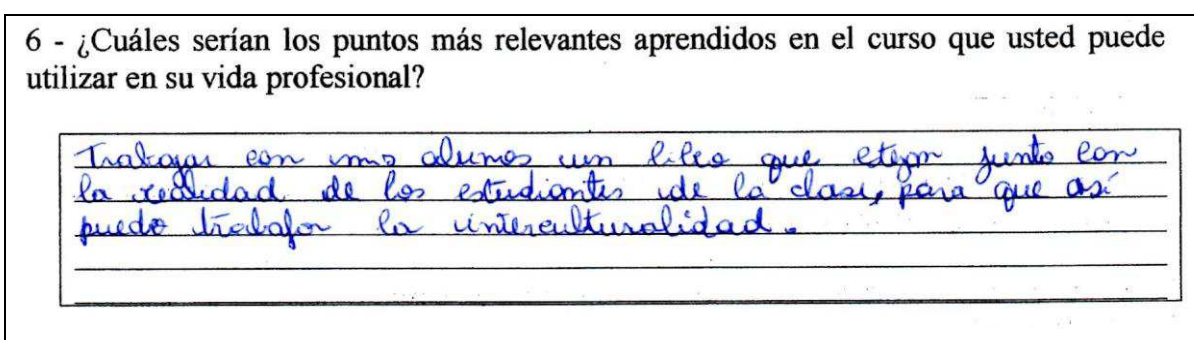 6 - ¿Cuáles serían los puntos más relevantes aprendidos en el curso que usted puede
utilizar en su vida profesional?
Trabajar con mis alumos un que junto con
la realidad de los estudiantes de la clase, para que así
puedo trabajar la interculturalidad.